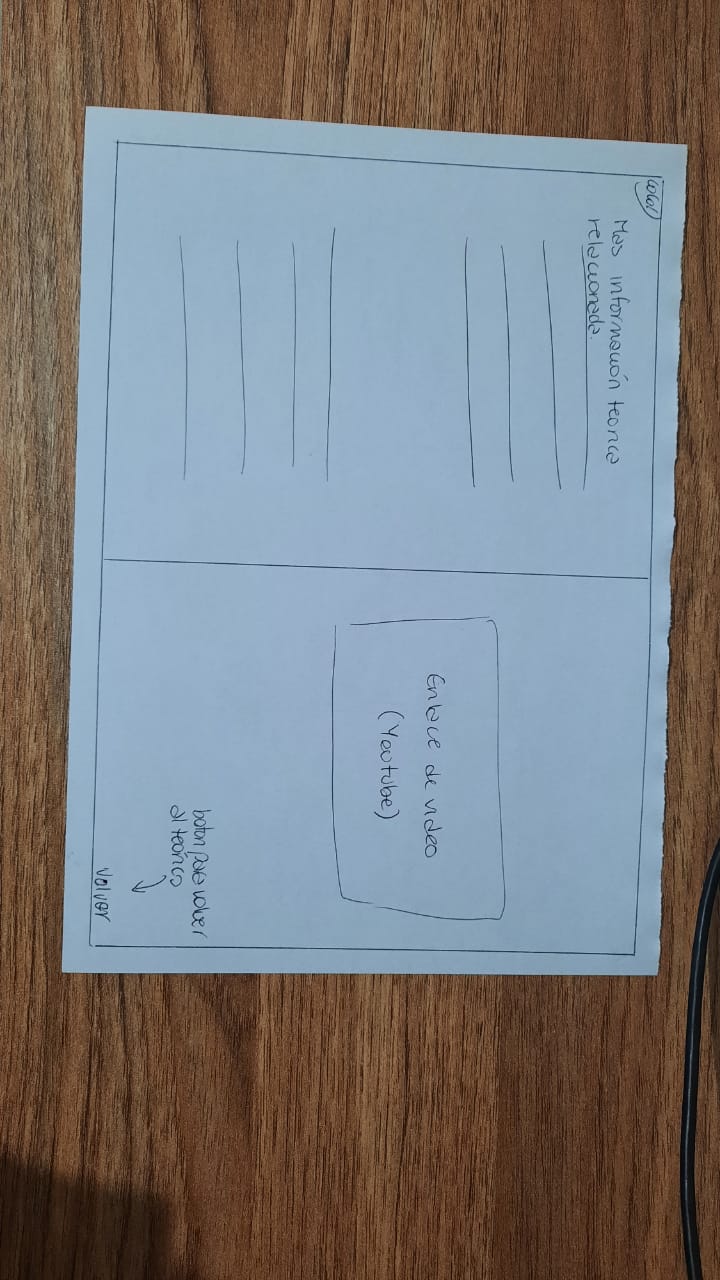 Mas información teorica
relacionada.
Enlace de video
(Youtube)
boton para volver
al teórico
Volver